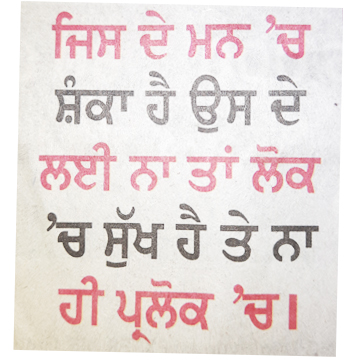 ਜਿਸ ਦੇ ਮਨ ’ਚ
ਸ਼ੰਕਾ ਹੈ ਉਸ ਦੇ
ਲਈ ਨਾ ਤਾਂ ਲੋਕ
’ਚ ਸੁੱਖ ਹੈ ਤੇ ਨਾ
ਹੀ ਪ੍ਰਲੋਕ ’ਚ।